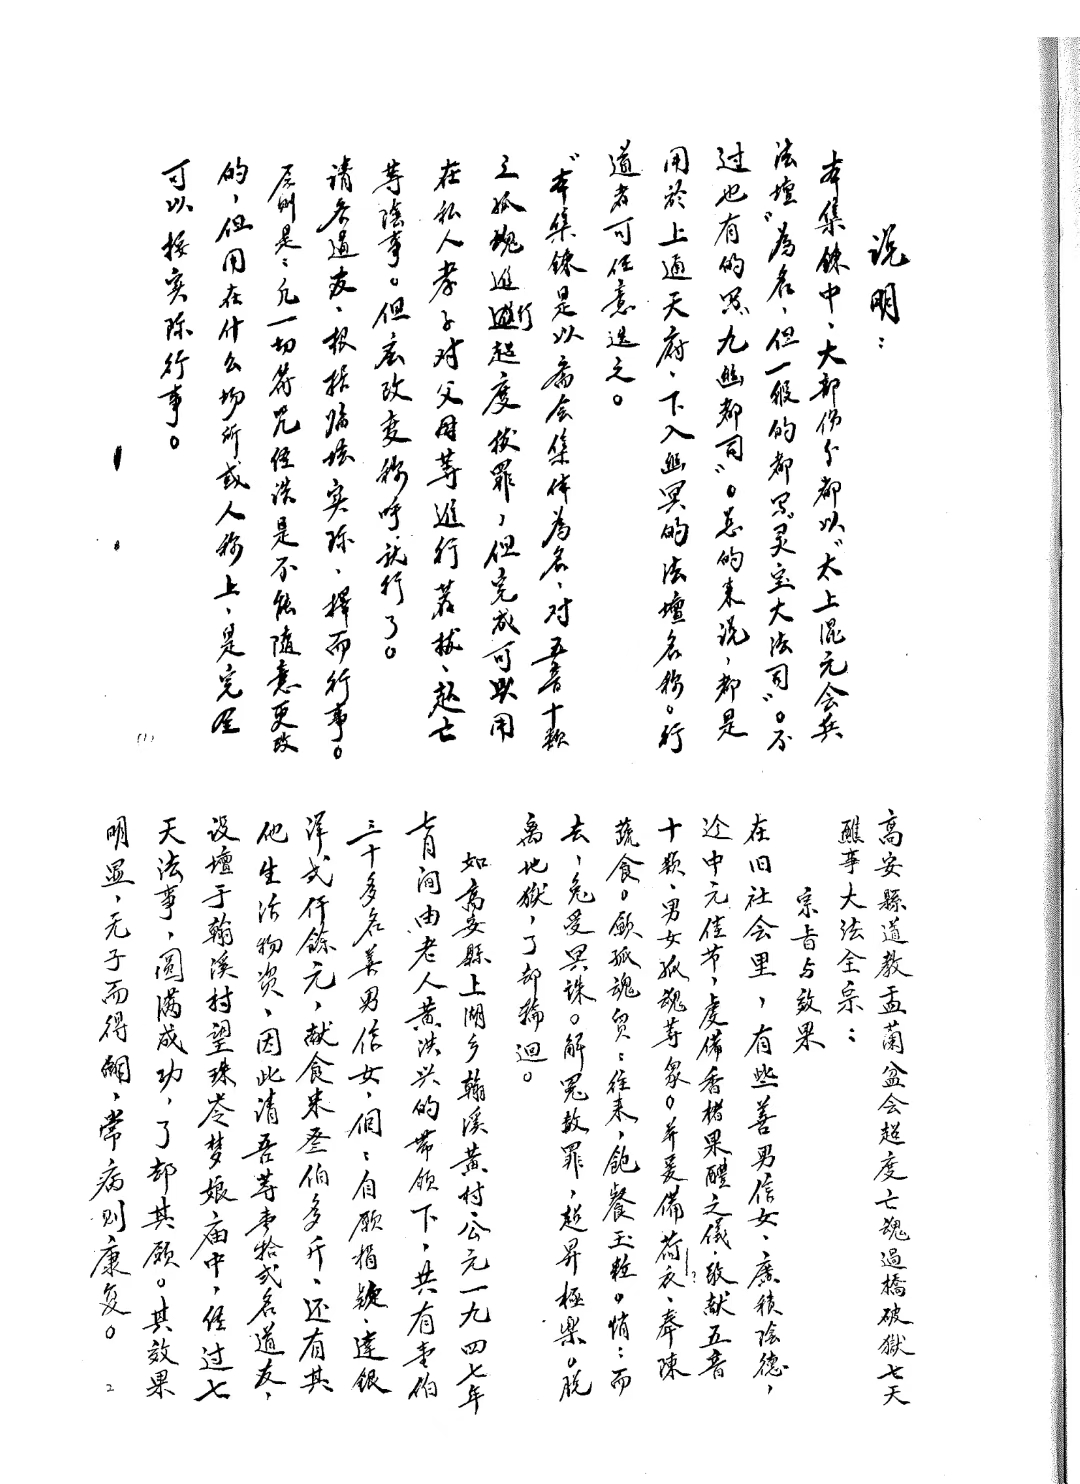 说明：
本集錄中、大部份分都以“太上混元会兵
法壇”為名，但一般的都是“灵宝大法司”。不
过也有的是“九幽都司”。总的来说，都是
用於上通天府、下入幽冥的法壇名称。行
道者可任意选之。
本集錄是以斋会集体為名、对五音十類
之孤魂进行超度拔罪，但完成可以用
在私人孝子对父母等进行荐拔、赴亡
等陰事。但应改变称呼就行了。
请各道友、根據临坛实际、擇而行事。
原则是：凡一切符咒经诰是不能随意更改
的，但用在什么场所或人称上，是完全
可以按实际行事。
(1)
高安縣道教盂蘭盆会超度亡魂過橋破獄七天
醮事大法全宗：
宗旨与效果
在旧社会里，有些善男信女、廣積陰德，
逢中元佳节，虔備香楮果醴之儀，敬献五音
十類、男女孤魂等眾。并爰備荷衣、奉陳
蔬食。歆孤魂貟：往来，飽餐玉粒。悄：而
去，免受冥誅。解冤赦罪，超昇極樂。脱
离地獄，了却輪迴。
如高安縣上湖乡翰溪黄村，公元一九四七年
七月间由老人黄洪兴的带领下，共有壹伯
三十多名善男信女，個：自願捐錢、達銀
洋弍仟餘元，献食米叁伯多斤、还有其
他生活物资，因此请吾等壹拾弍名道友，
设壇于翰溪村望珠岺梦娘庙中，经过七
天法事，圆满成功，了却其願。其效果
明显，无子而得嗣，常病则康复。
2